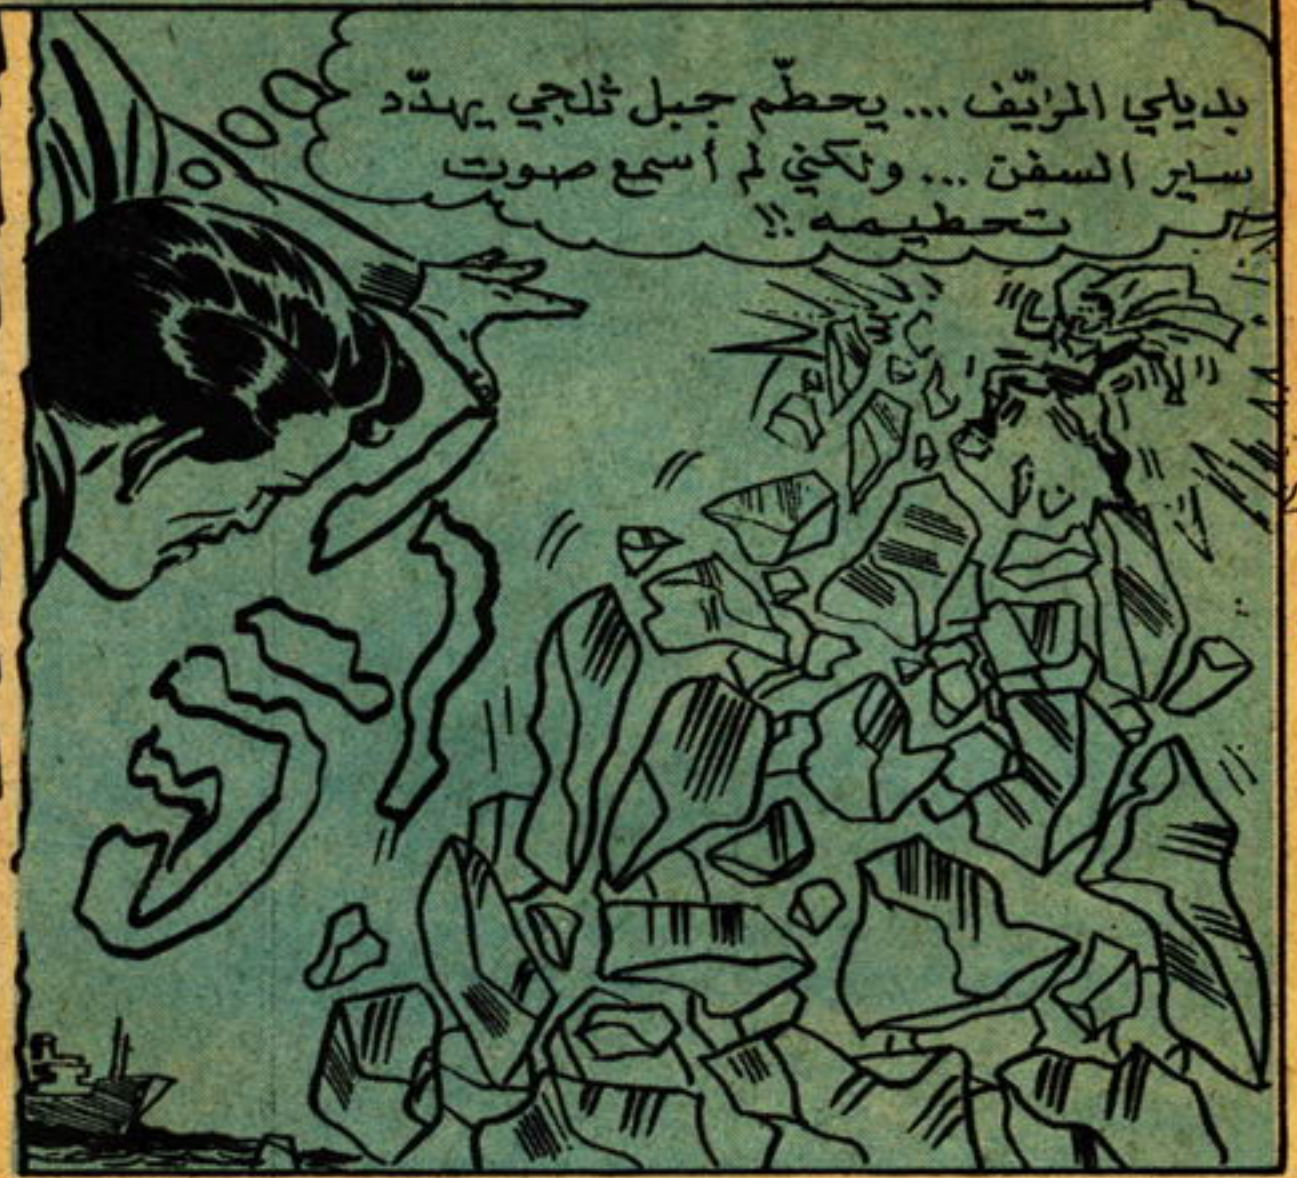 بديلي المزيّف ... يحطّم جبل ثلجي يهدّد
سير السفن ... ولكني لم أسمع صوت
تحطيمه !!